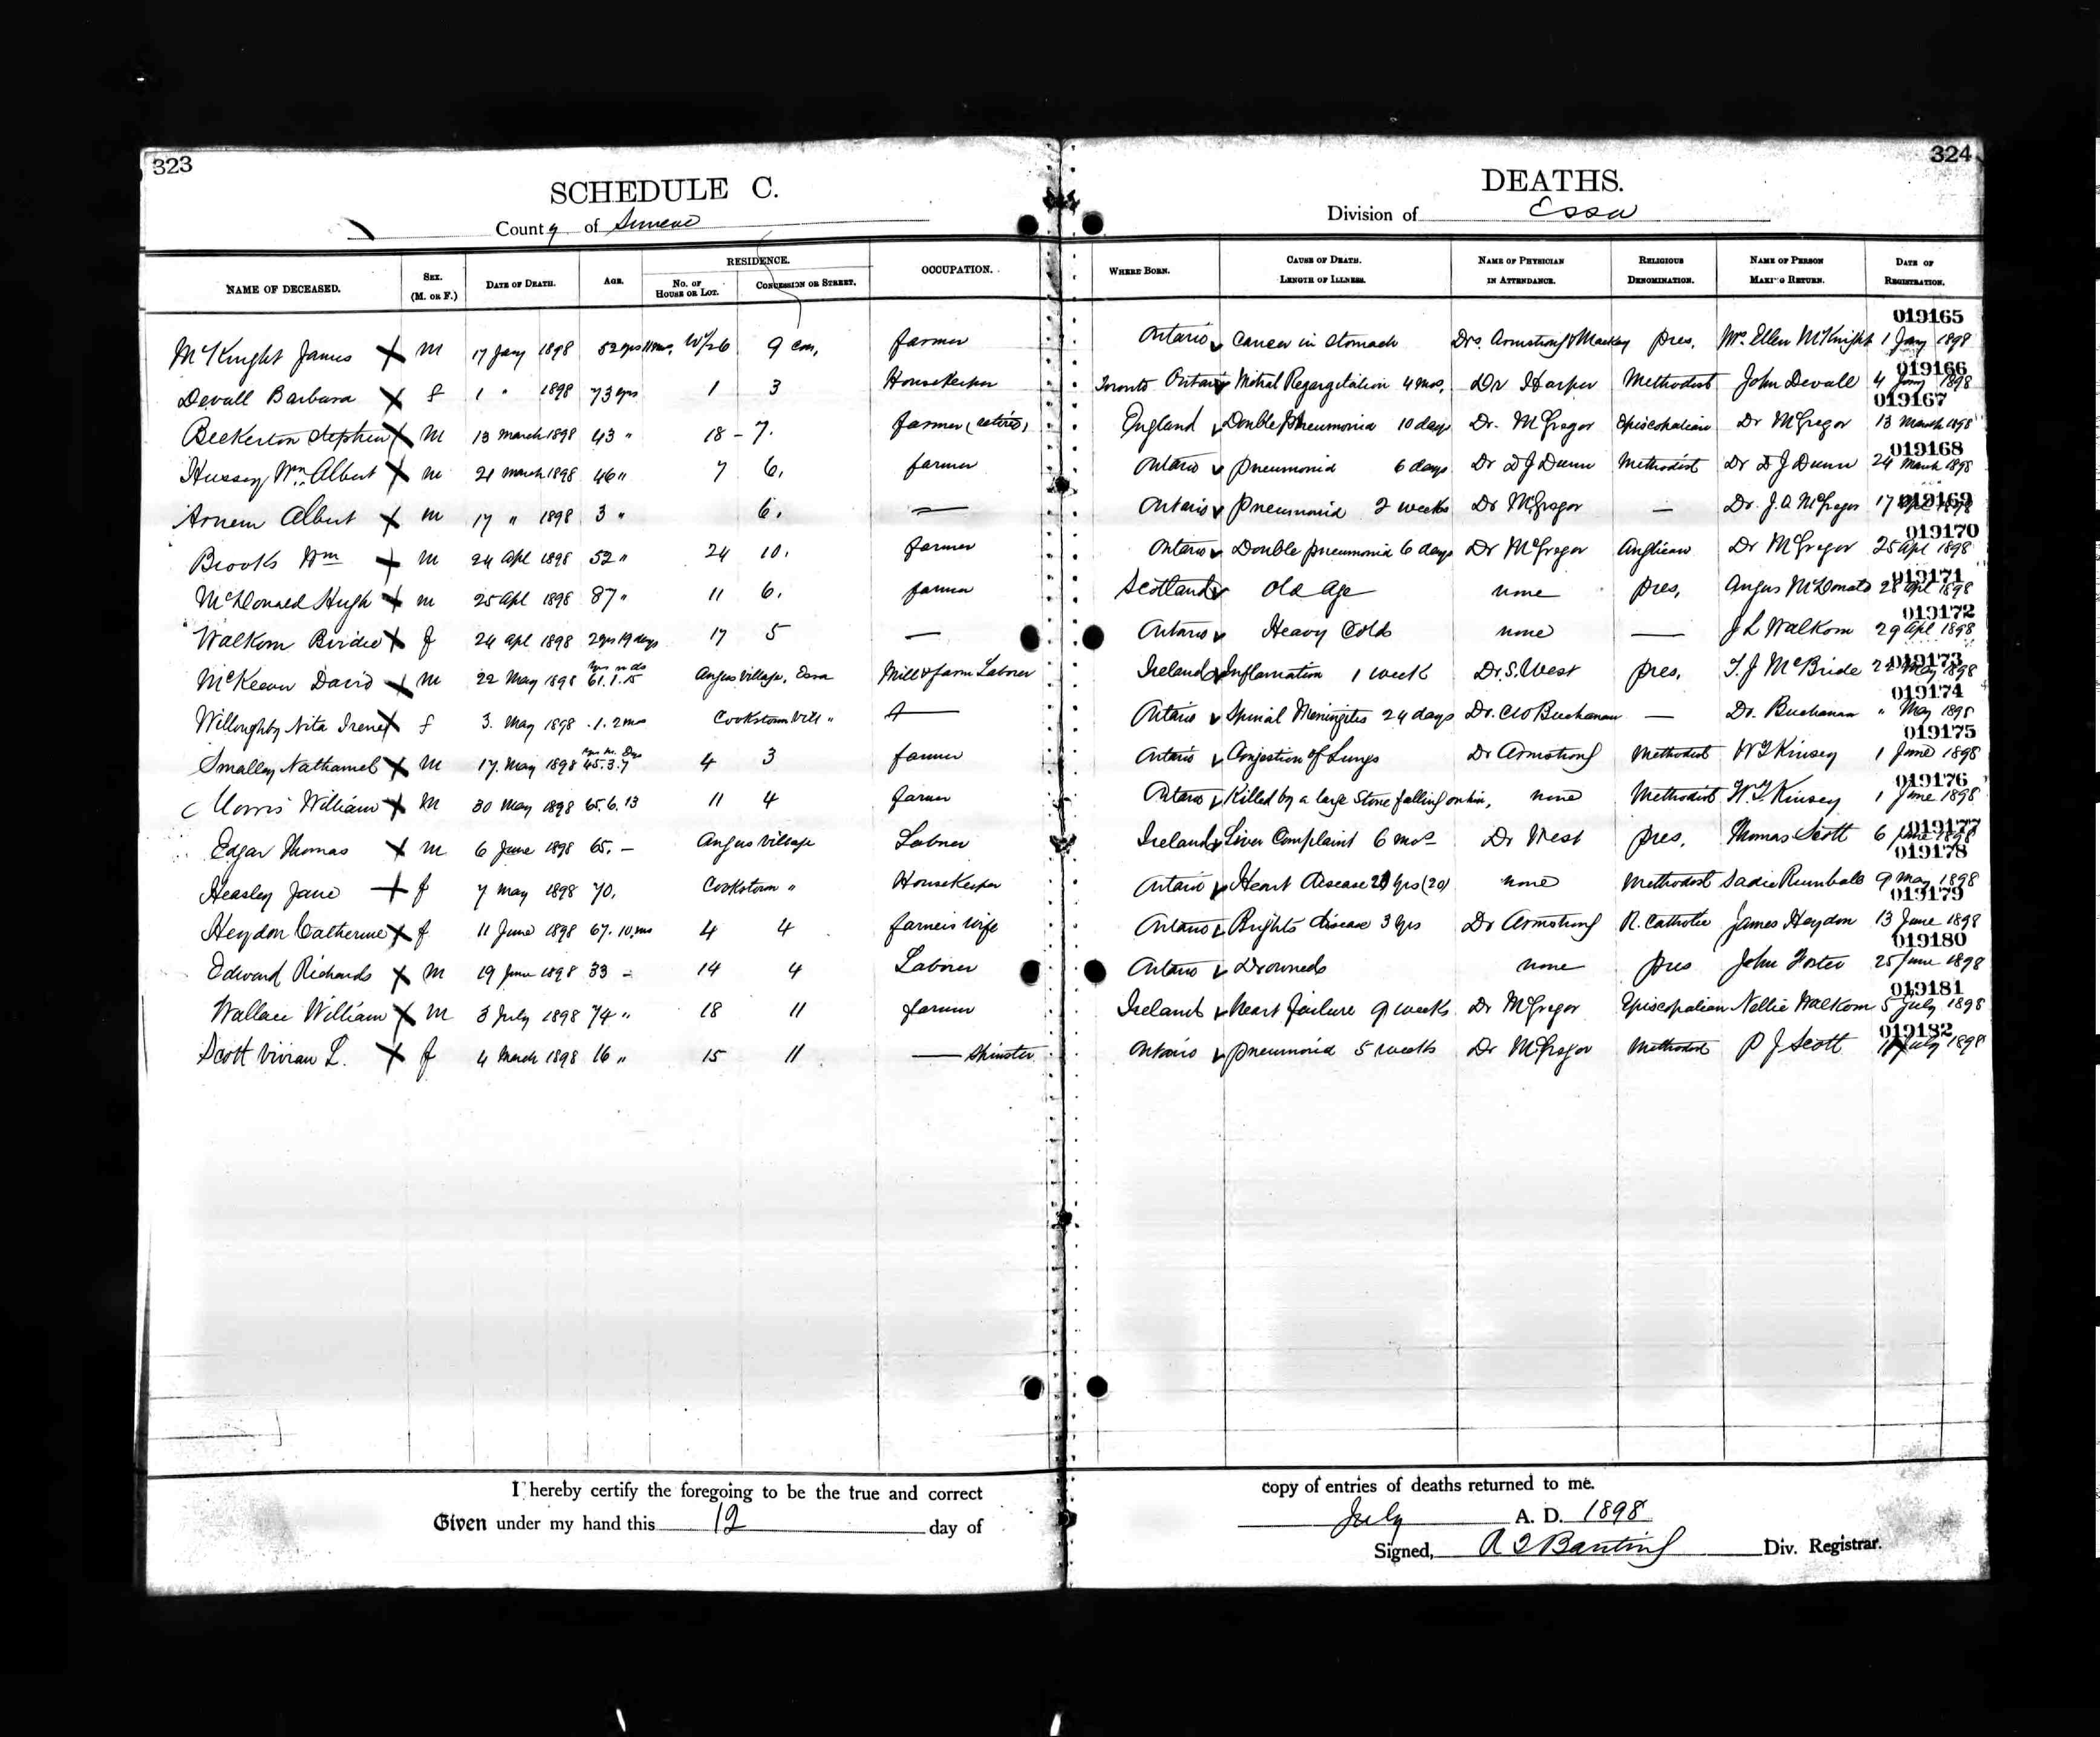 323
324
SCHEDULE C.
DEATHS.
County of Simcoe
Division of Essa
NAME OF DECEASED. SEX. (M. OR F.) DATE OF DEATH. AGE. RESIDENCE. No. OF HOUSE OR LOT. CONCESSION OR STREET. OCCUPATION. WHERE BORN. CAUSE OF DEATH. LENGTH OF ILLNESS. NAME OF PHYSICIAN IN ATTENDANCE. RELIGIOUS DENOMINATION. NAME OF PERSON MAKING RETURN. DATE OF REGISTRATION.
019165
McKnight James X M 17 Jany 1898 52 yrs W/26 9 con, farmer Ontario Cancer in stomach Drs. Armstrong & Mackay Pres. Mrs Ellen McKnight 1 Jany 1898
019166
Devall Barbara X f 1 " 1898 73 yrs 1 3 Housekeeper Toronto Ontario Mitral Regargitation 4 mos, Dr Harper Methodist John Devall 4 Jany 1898
019167
Beckerton Stephen X M 13 March 1898 43 " 18 - 7. farmer (retired) England Double Pneumonia 10 days Dr. McGregor Episcopalian Dr McGregor 13 March 1898
019168
Hussey Wm Albert X m 21 march 1898 46 " 7 6, farmer Ontario Pneumonia 6 days Dr D J Dunn Methodist Dr D J Dunn 24 March 1898
019169
Arnem Albert X m 17 " 1898 3 " 6. — Ontario Pneumonia 2 weeks Dr McGregor — Dr. J. A McGregor 17 1898
019170
Brooks Wm X m 24 Apl 1898 52 " 24 10. farmer Ontario Double pneumonia 6 days Dr McGregor Anglican Dr McGregor 25 Apl 1898
019171
McDonald Hugh X m 25 Apl 1898 87 " 11 6. farmer Scotland Old Age none Pres, Angus McDonald 28 Apl 1898
019172
Walkom Birdie X f 24 Apl 1898 2 yrs 19 days 17 5 — Ontario Heavy Colds none — J L Walkom 29 Apl 1898
019173
McKeown David X m 22 May 1898 61.1.15 Angus Village, Essa Mill & farm Laborer Ireland Inflamation 1 week Dr. S. West Pres, T. J McBride May 1898
019174
Willoughby Nita Irene X f 3. May 1898 1. 2 mos Cookstown Vill " — Ontario Spinal Meningites 24 days Dr. Buchanan — Dr. Buchanan " May 1898
019175
Smalley Nathaniel X M 17. May 1898 45.3.7 4 3 farmer Ontario Conjestion of Lungs Dr Armstrong Methodist W T Kinsey 1 June 1898
019176
Morris William X M 30 May 1898 65.6.13 11 4 farmer Ontario Killed by a large Stone falling on him, none Methodist W. T. Kinsey 1 June 1898
019177
Edgar Thomas X M 6 June 1898 65. — Angus Village Laborer Ireland Liver Complaint 6 mos Dr West Pres, Thomas Scott 6 June 1898
019178
Heasley Jane X f 7 May 1898 70. Cookstown " Housekeeper Ontario Heart Disease 20 yrs (20) none Methodist Sadie Rumball 9 May 1898
019179
Heydon Catherine X f 11 June 1898 67. 10 ms 4 4 farmers wife Ontario Brights disease 3 yrs Dr Armstrong R. Catholic James Heydon 13 June 1898
019180
Edward Richards X M 19 June 1898 33 - 14 4 Laborer Ontario Drowned none Pres John Foster 25 June 1898
019181
Wallace William X M 3 July 1898 74 " 18 11 farmer Ireland heart failure 9 weeks Dr McGregor Episcopalian Nellie Walkom 5 July 1898
019182
Scott Vivian L. X f 4 March 1898 16 " 15 11 — Spinster Ontario Pneumonia 5 weeks Dr McGregor Methodist P J Scott 11 July 1898
I hereby certify the foregoing to be the true and correct copy of entries of deaths returned to me.
Given under my hand this 12 day of July A. D. 1898
Signed, R T Banting Div. Registrar.